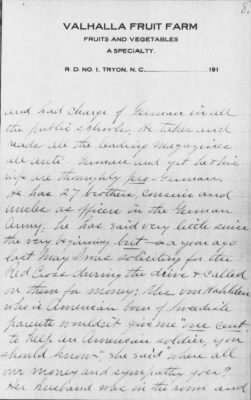 8.
VALHALLA FRUIT FARM
FRUITS AND VEGETABLES
A SPECIALTY.
R. D. NO. 1, TRYON, N. C. 191
and had charge of German in all
the public schools. He takes and
reads all the leading Magazines
all anti-German and yet he & his
wife are thoroughly pro-German.
He has 27 brothers, cousins and
uncles as officers in the German
Army; he has said very little since
the very beginning but a year ago
last May I was soliciting for the
Red Cross during the drive & called
on them for money; Mrs. von
who is American born of Swedish
parents wouldn't give me "one cent
to keep an American soldier, you
should know", she said where all
our money and sympathy goes"
Her husband was in the room and